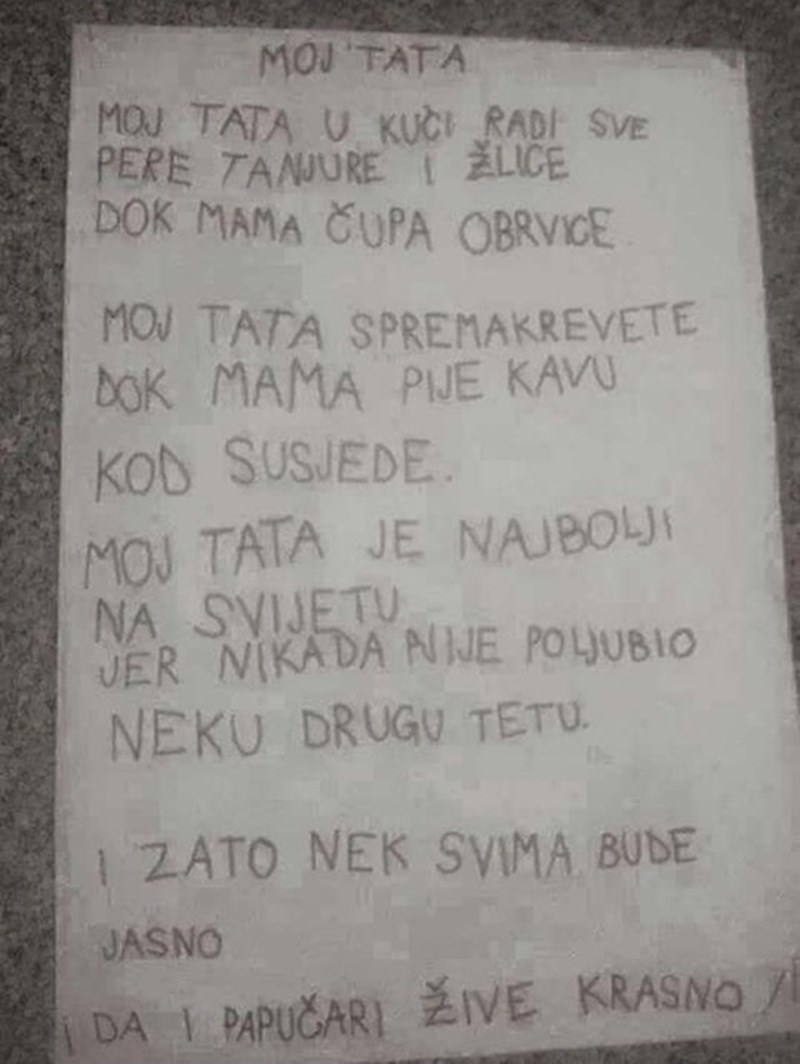 MOJ TATA
MOJ TATA U KUČI RADI SVE
PERE TANJURE I ŽLICE
DOK MAMA ČUPA OBRVICE
MOJ TATA SPREMAKREVETE
DOK MAMA PIJE KAVU
KOD SUSJEDE.
MOJ TATA JE NAJBOLJI
NA SVIJETU
JER NIKADA NIJE POLJUBIO
NEKU DRUGU TETU.
I ZATO NEK SVIMA BUDE
JASNO
I DA I PAPUČARI ŽIVE KRASNO /I